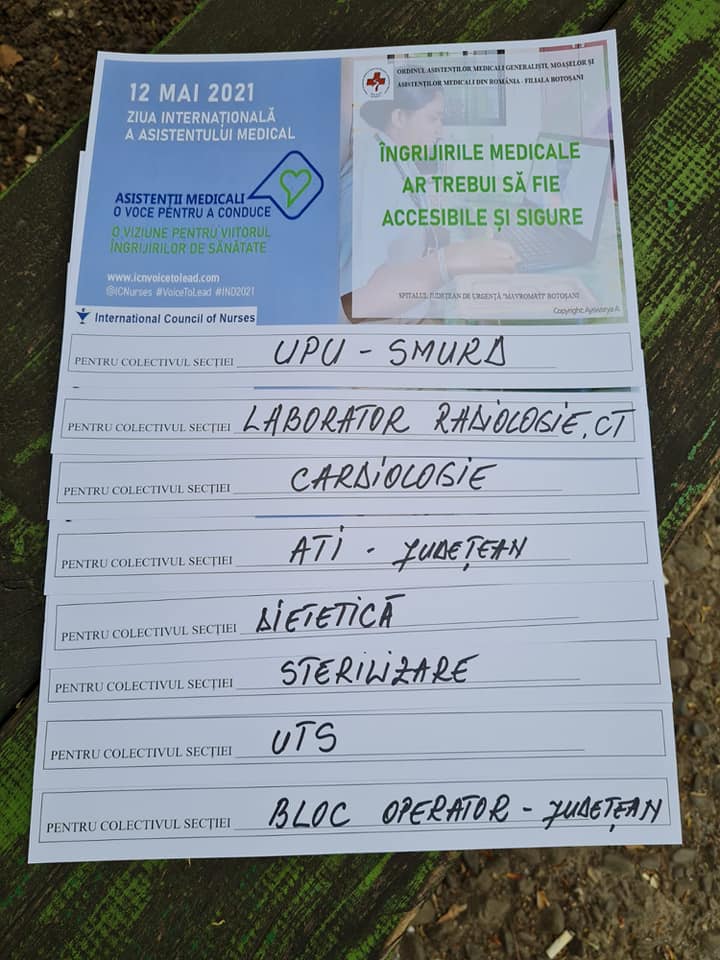 12 MAI 2021
ZIUA INTERNAȚIONALĂ
A ASISTENTULUI MEDICAL
ASISTENȚII MEDICALI
O VOCE PENTRU A CONDUCE
O VIZIUNE PENTRU VIITORUL
ÎNGRIJIRILOR DE SĂNĂTATE
www.icnvoicetolead.com
@ICNurses #VoiceToLead #IND2021
International Council of Nurses
ORDINUL ASISTENȚILOR MEDICALI GENERALIȘTI, MOAȘELOR ȘI
ASISTENȚILOR MEDICALI DIN ROMÂNIA - FILIALA BOTOȘANI
ÎNGRIJIRILE MEDICALE
AR TREBUI SĂ FIE
ACCESIBILE ȘI SIGURE
SPITALUL JUDEȚEAN DE URGENȚĂ "MAVROMATI" BOTOȘANI
Copyright: Ayswarya A.
PENTRU COLECTIVUL SECȚIEI UPU - SMURD
PENTRU COLECTIVUL SECȚIEI LABORATOR RADIOLOGIE, CT
PENTRU COLECTIVUL SECȚIEI CARDIOLOGIE
PENTRU COLECTIVUL SECȚIEI ATI - JUDEȚEAN
PENTRU COLECTIVUL SECȚIEI DIETETICĂ
PENTRU COLECTIVUL SECȚIEI STERILIZARE
PENTRU COLECTIVUL SECȚIEI UTS
PENTRU COLECTIVUL SECȚIEI BLOC OPERATOR - JUDEȚEAN